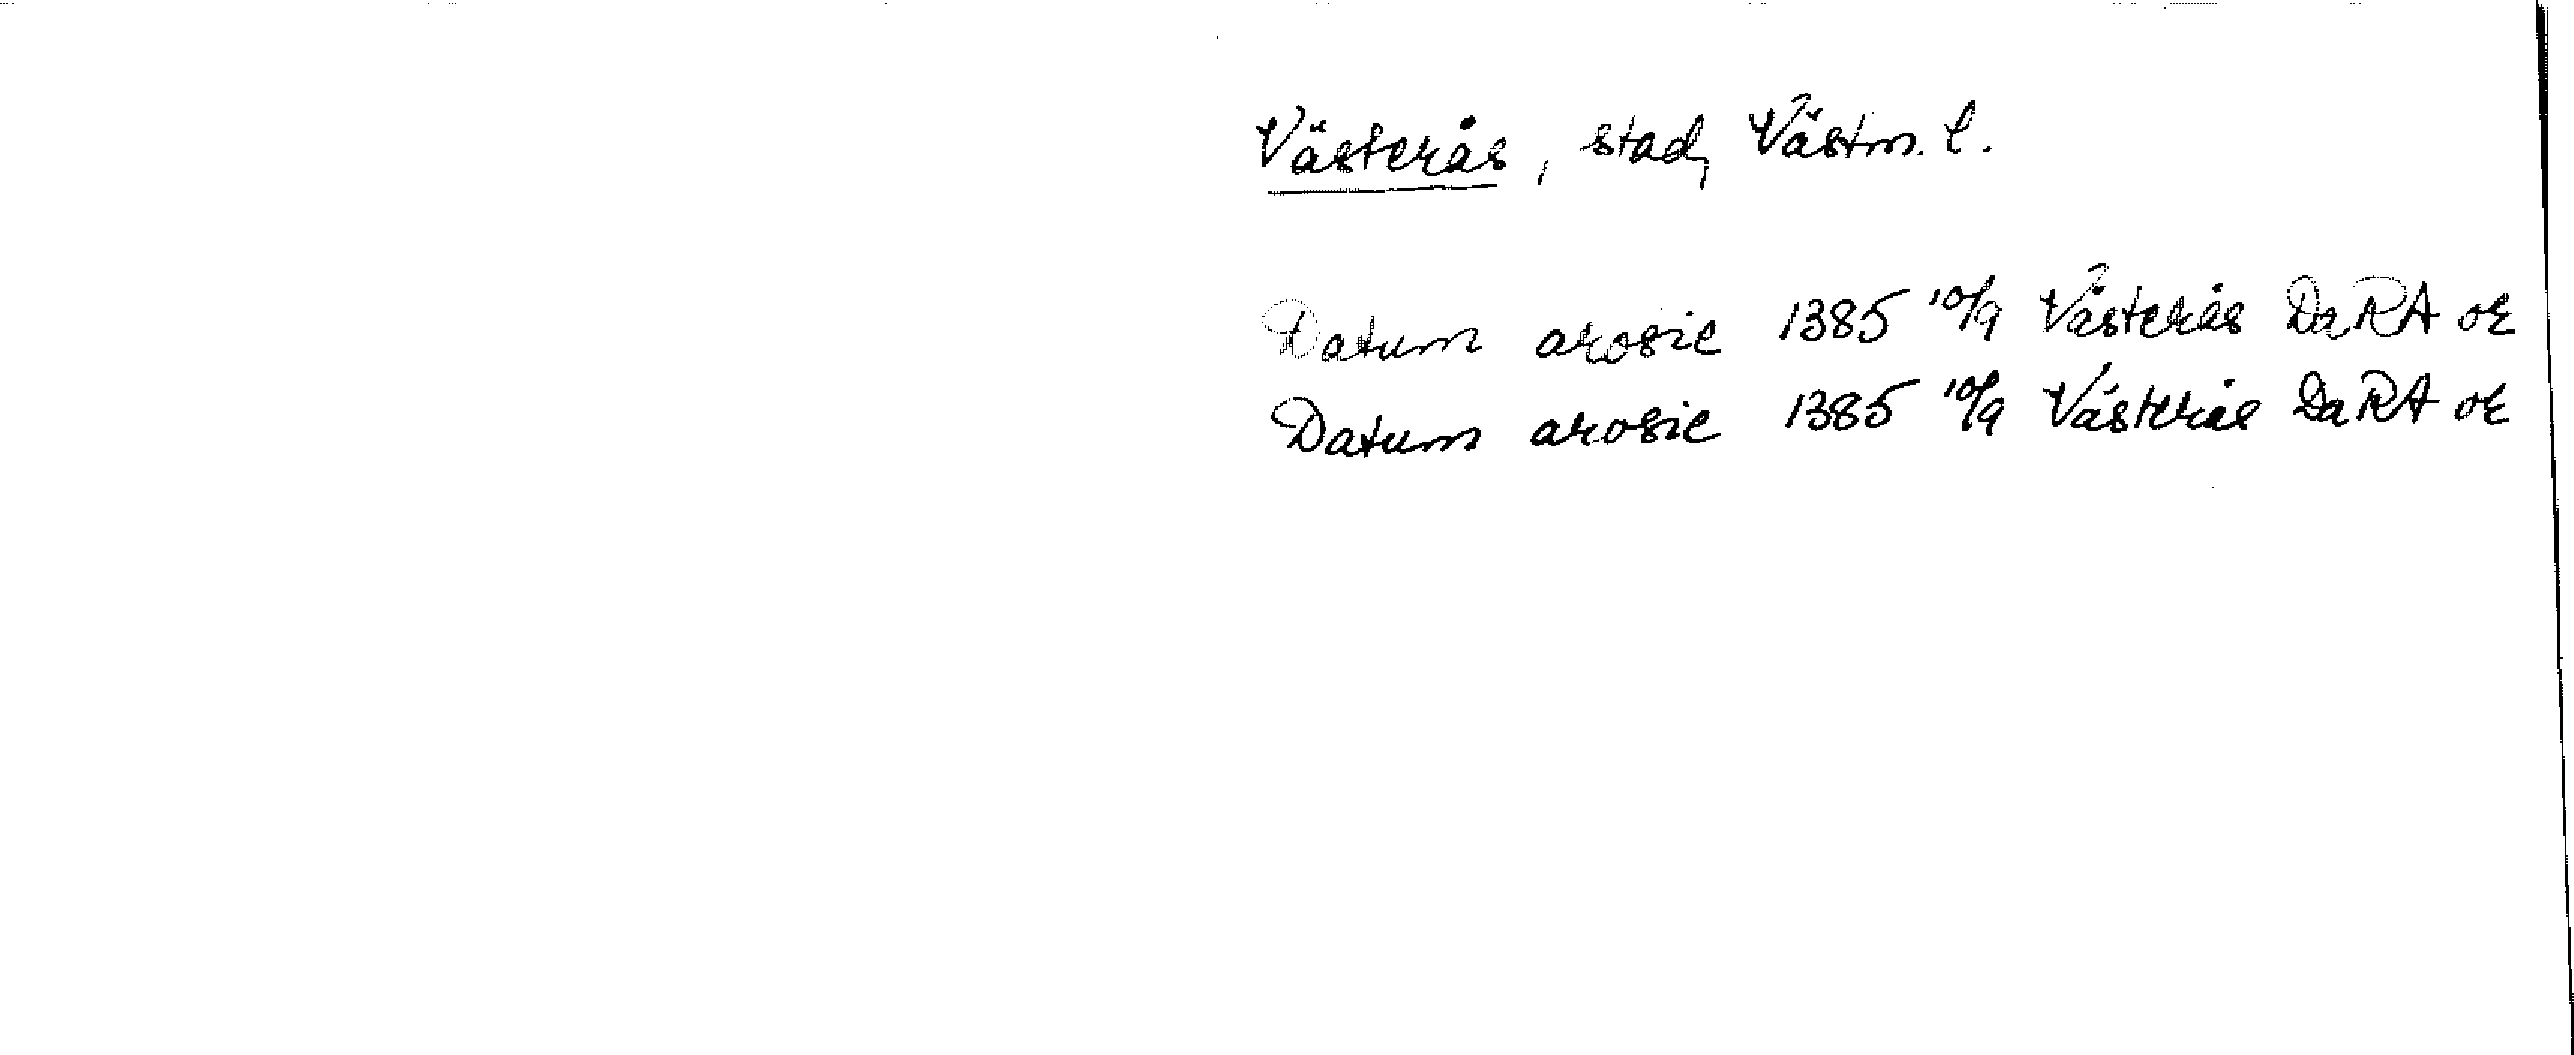 Västerås, stad, Västm. l.
Datum arosie 1385 10/9 Västerås DaRA or
Datum arosie 1385 10/9 Västerås DaRA or